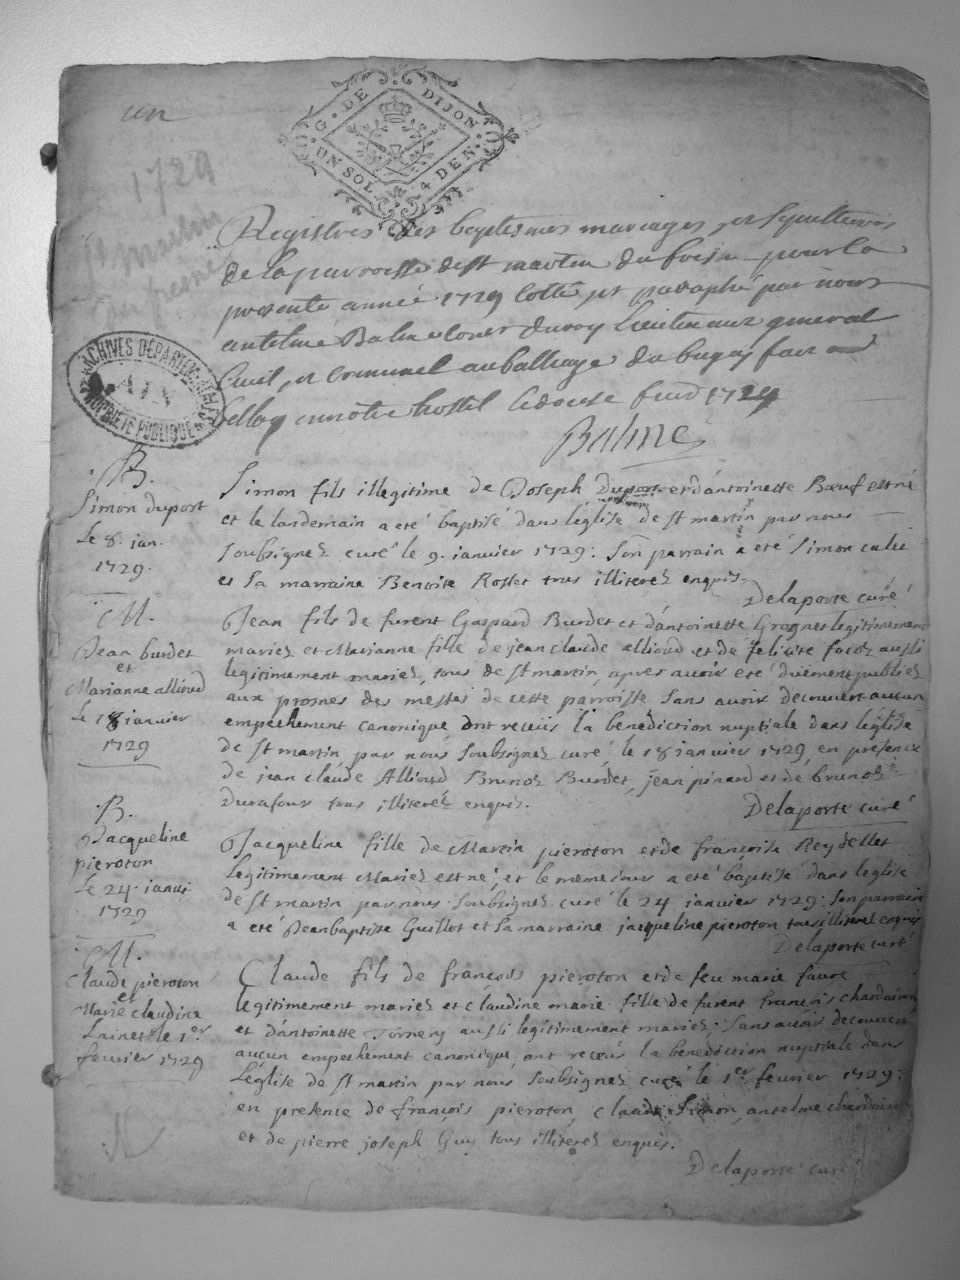 un
G. DE DIJON
UN SOL 4 DEN.
1729
St martin
du fresne
ARCHIVES DEPARTEMENTALES
AIN
PROPRIETE PUBLIQUE
Registres des baptesmes mariages, et sepultures
de la parroisse de st martin du fresne pour la
presente année 1729 cotté, et paraphé par nous
antelme Balme coner du roy Lieutenant general
Civil, et criminel au balliage du bugey fait a
Belley en notre hostel le douse 1729
Balme
B.
Simon duport
Le 8. jan.
1729.
Simon fils illegitime de Joseph Duport et d'antoinette Bœuf est né
et le landemain a eté baptisé dans l'eglise de st martin par nous
soubsignez curé le 9. janvier 1729: Son parrain a eté Simon
et sa marraine Benoite Rosset tous illiterez enquis.
Delaporte curé
M.
Jean burdet
et
Marianne allioud
Le 18 janvier
1729
Jean fils de furent Gaspard Burdet et d'antoinette Grognet legitimement
mariez et Marianne fille de jean claude allioud et de felicite aussi
legitimement mariez, tous de st martin, apres avoir eté duement publiez
aux prosnes des messes de cette parroisse sans avoir decouvert aucun
empechement canonique ont receus la benediction nuptiale dans leglise
de st martin par nous soubsignez curé le 18 janvier 1729, en presence
de jean claude Allioud Brunoz Burdet, jean pinard et de brunoz
Durafour tous illiterez enquis.
Delaporte curé
B.
Jacqueline
pieroton
Le 24. janvi
1729
Jacqueline fille de Martin pieroton et de françoise Reydellet
legitimement Mariez est né, et le meme jour a eté baptisé dans leglise
de st martin par nous soubsignez curé le 24 janvier 1729: Son parrain
a eté Jean baptiste Guillot et sa marraine jacqueline pieroton tous illiterez enquis
Delaporte curé
M.
Claude pieroton
et
Marie claudine
le 1er
fevrier 1729
Claude fils de françois pieroton et de feu marie favre
legitimement mariez et claudine marie fille de furent françois
et d'antoinette aussi legitimement mariez: sans avoir decouvert
aucun empechement canonique, ont receus la benediction nuptiale dans
L'eglise de st martin par nous soubsignez curé le 1er fevrier 1729:
en presence de françois pieroton, claude Simon, antelme
et de pierre joseph Guy tous illiterez enquis.
Delaporte curé